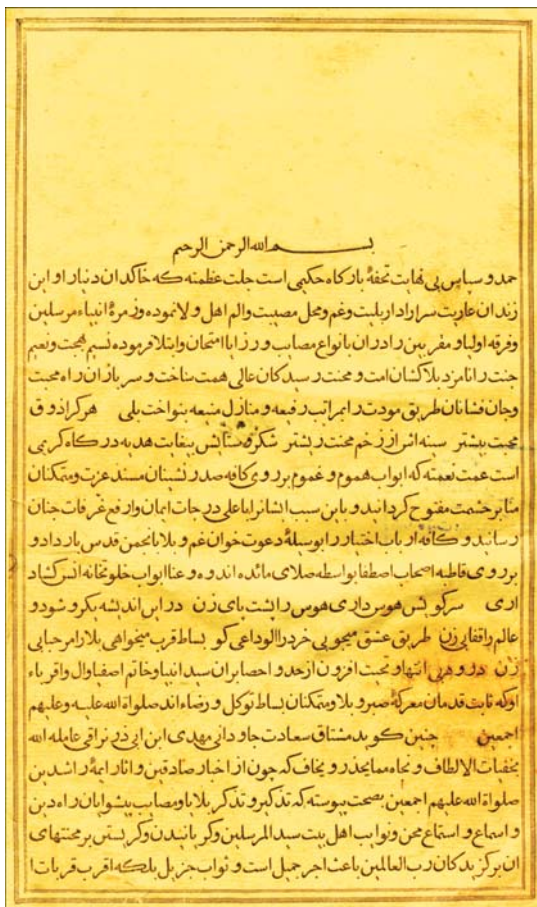 بسم الله الرحمن الرحیم
حمد و سپاس بی نهایت تحفهٔ بارکاه حکیمی است جلت عظمته که خاکدان دنیا را و این
زندان عاریت سرا را دار بلیت و غم و محل مصیبت والم اهل ولا نموده و زمرهٔ انبیاء مرسلین
و فرقه اولیا و مقربین را در ان بانواع مصایب و رزایا امتحان و ابتلا فرموده نسیم بهجت و نعیم
جنت را نامزد بلاکشان امت و محنت رسیدکان عالی همت ساخت و سربازان راه محبت
و جان فشانان طریق مودت را بمراتب رفیعه و منازل منیعه بنواخت بلی هرکرا ذوق
محبت بیشتر سینه اش از زخم محنت ریشتر شکر و ستایش بیغایت هدیه درکاه کریمی
است عمت نعمته که ابواب هموم و غموم بر روی کافه صدرنشینان مسند عزت و متمکنان
منابر حشمت مفتوح کردانید و باین سبب ایشانرا باعلی درجات ایمان و ارفع غرفات جنان
رسانید و کافه ارباب اختیار را بوسیلهٔ دعوت خوان غم و بلا بانجمن قدس بار داد و
بر روی قاطبه اصحاب اصطفا بواسطه صلای مائده اندوه و عنا ابواب خلوتخانه انس کشاد
اری سر کویش هوس داری هوس را پشت پای زن درین اندیشه یکرو شو دو
عالم را قفایی زن طریق عشق میجویی خرد را الوداعی کو بساط قرب میخواهی بلا را مرحبایی
زن درود بی انتها و تحیت افزون از حد و احصا بر ان سید انبیا و خاتم اصفیا و ال و اقرباء
او که ثابت قدمان معرکهٔ صبر و بلا و متمکنان بساط توکل و رضاءاند صلواة الله علیه و علیهم
اجمعین چنین کوید مشتاق سعادت جاودانی مهدی ابن ابی ذر نراقی عامله الله
بخفیات الالطاف و نجاه مما یحذر و یخاف که چون از اخبار صادقین و اثار ایمهٔ راشدین
صلواة الله علیهم اجمعین بصحت پیوسته که تذکیر و تذکر بلایا و مصایب پیشوایان راه دین
و اسماع و استماع محن و نوایب اهل بیت سید المرسلین و کریانیدن و کریستن بر محنتهای
ان برکزیدکان رب العالمین باعث اجر جمیل است و ثواب جزیل بلکه اقرب قربات ا